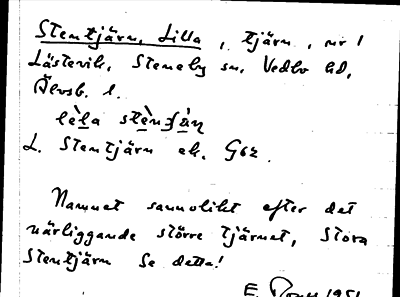 Stentjärn, Lilla, tjärn, nr 1
Låstevik, Steneby sn, Vedbo hd,
Älvsb. l.
L. Stentjärn ek. G62.
Namnet sannolikt efter det
närliggande större tjärnet, Stora
Stentjärn Se detta!
E. 1951